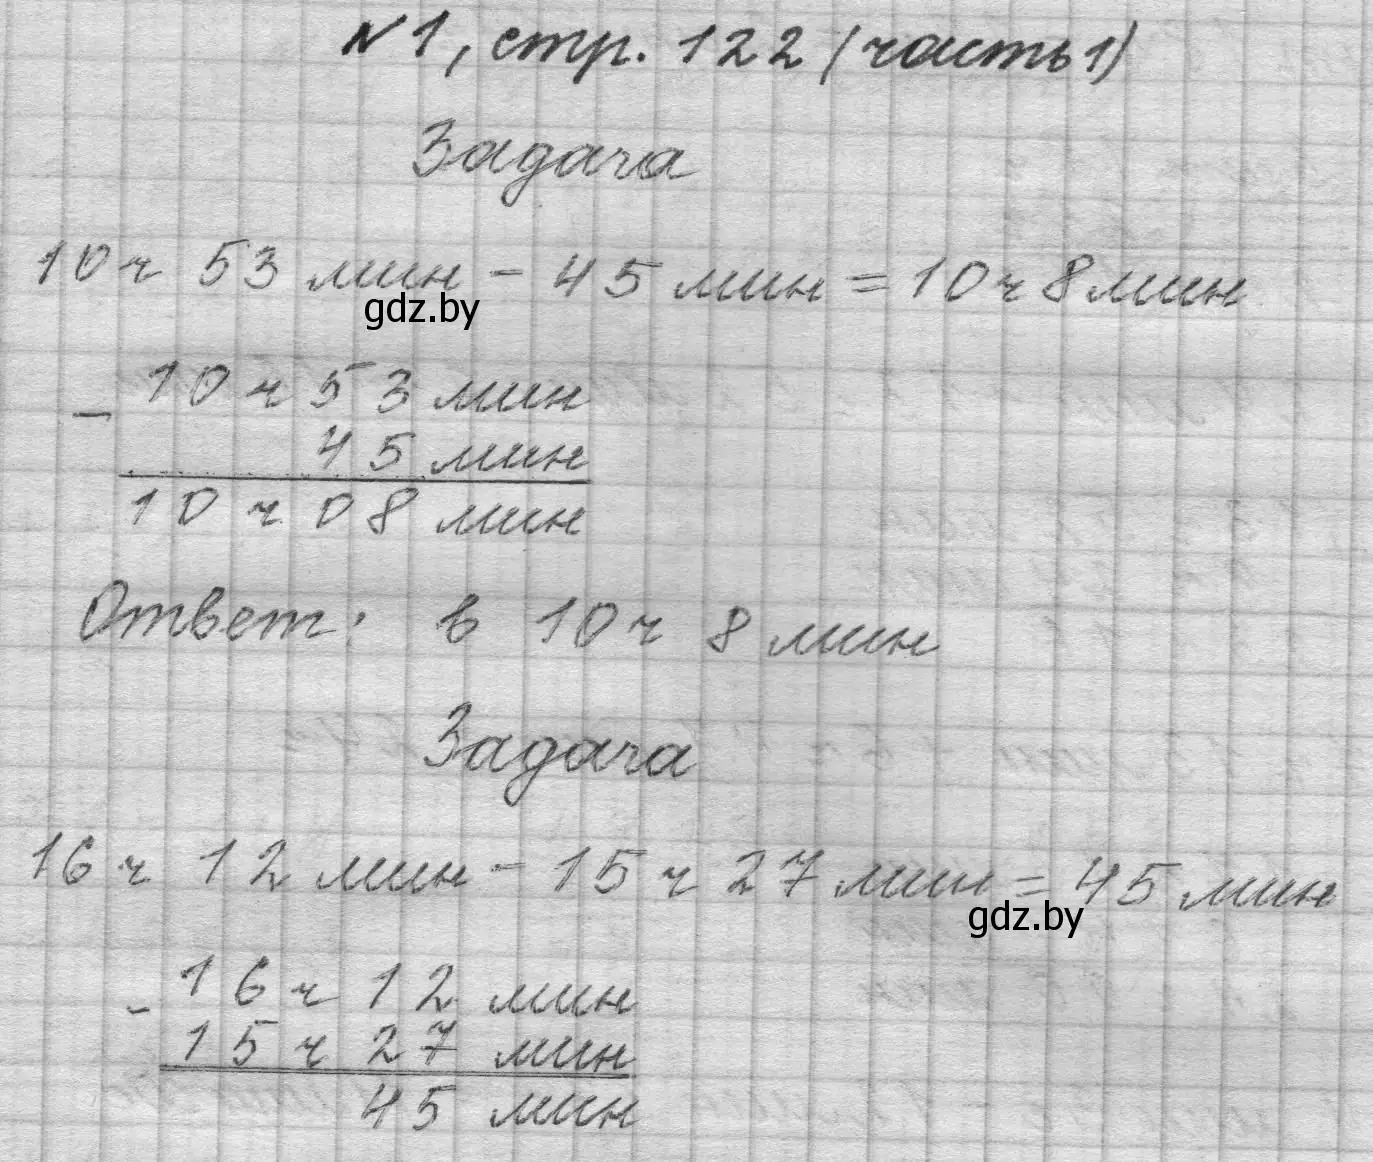 №1, стр. 122 (часть 1)
Задача
10 ч 53 мин - 45 мин = 10 ч 8 мин
gdz.by
- 10 ч 53 мин
45 мин
10 ч 08 мин
Ответ: в 10 ч 8 мин
Задача
16 ч 12 мин - 15 ч 27 мин = 45 мин
gdz.by
- 16 ч 12 мин
15 ч 27 мин
45 мин